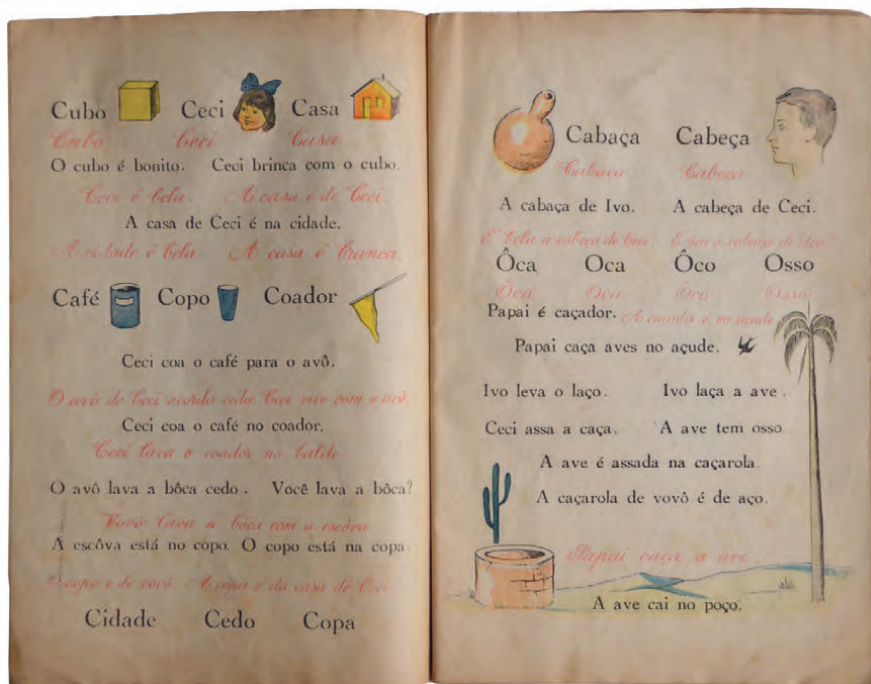 Cubo Ceci Casa
Cubo Ceci Casa
O cubo é bonito. Ceci brinca com o cubo.
Ceci é bela. A casa é de Ceci.
A casa de Ceci é na cidade.
A cidade é bela. A casa é branca.
Café Copo Coador
Ceci coa o café para o avô.
O avô de Ceci acorda cedo. Ceci vive com o avô.
Ceci coa o café no coador.
Ceci lava o coador no balde
O avô lava a bôca cedo. Você lava a bôca?
Vovô lava a boca com a escôva
A escôva está no copo. O copo está na copa.
O copo é de vovô. A copa é da casa de Ceci
Cidade Cedo Copa
Cabaça Cabeça
Cabaça Cabeça
A cabaça de Ivo. A cabeça de Ceci.
É bela a cabeça de Ceci. É ôca a cabaça de Ivo?
Ôca Oca Ôco Osso
Ôca Oca Ôco Osso
Papai é caçador. A caçada é no açude
Papai caça aves no açude.
Ivo leva o laço. Ivo laça a ave.
Ceci assa a caça. A ave tem osso
A ave é assada na caçarola.
A caçarola de vovô é de aço.
Papai caça a ave.
A ave cai no poço.